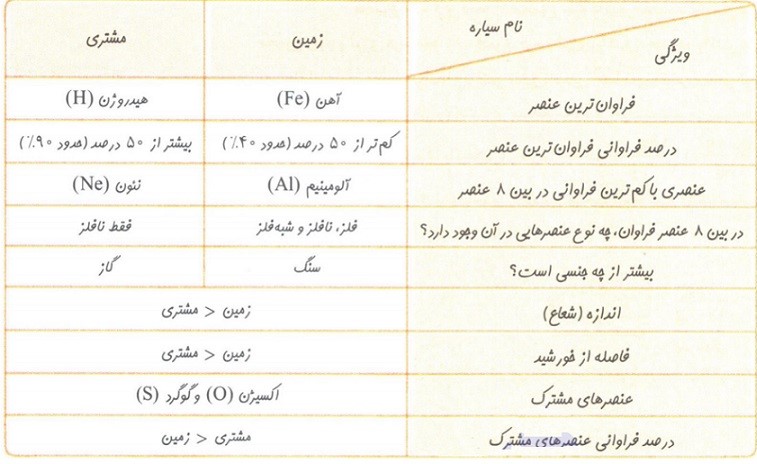 نام سیاره
ویژگی
زمین
مشتری
فراوان‌ترین عنصر
آهن (Fe)
هیدروژن (H)
درصد فراوانی فراوان‌ترین عنصر
کم‌تر از ۵۰ درصد (حدود ۴۰٪)
بیشتر از ۵۰ درصد (حدود ۹۰٪)
عنصری با کم‌ترین فراوانی در بین ۸ عنصر
آلومینیم (Al)
نئون (Ne)
در بین ۸ عنصر فراوان، چه نوع عنصرهایی در آن وجود دارد؟
فلز، نافلز و شبه‌فلز
فقط نافلز
بیشتر از چه جنسی است؟
سنگ
گاز
اندازه (شعاع)
زمین < مشتری
فاصله از خورشید
زمین < مشتری
عنصرهای مشترک
اکسیژن (O) و گوگرد (S)
درصد فراوانی عنصرهای مشترک
مشتری < زمین